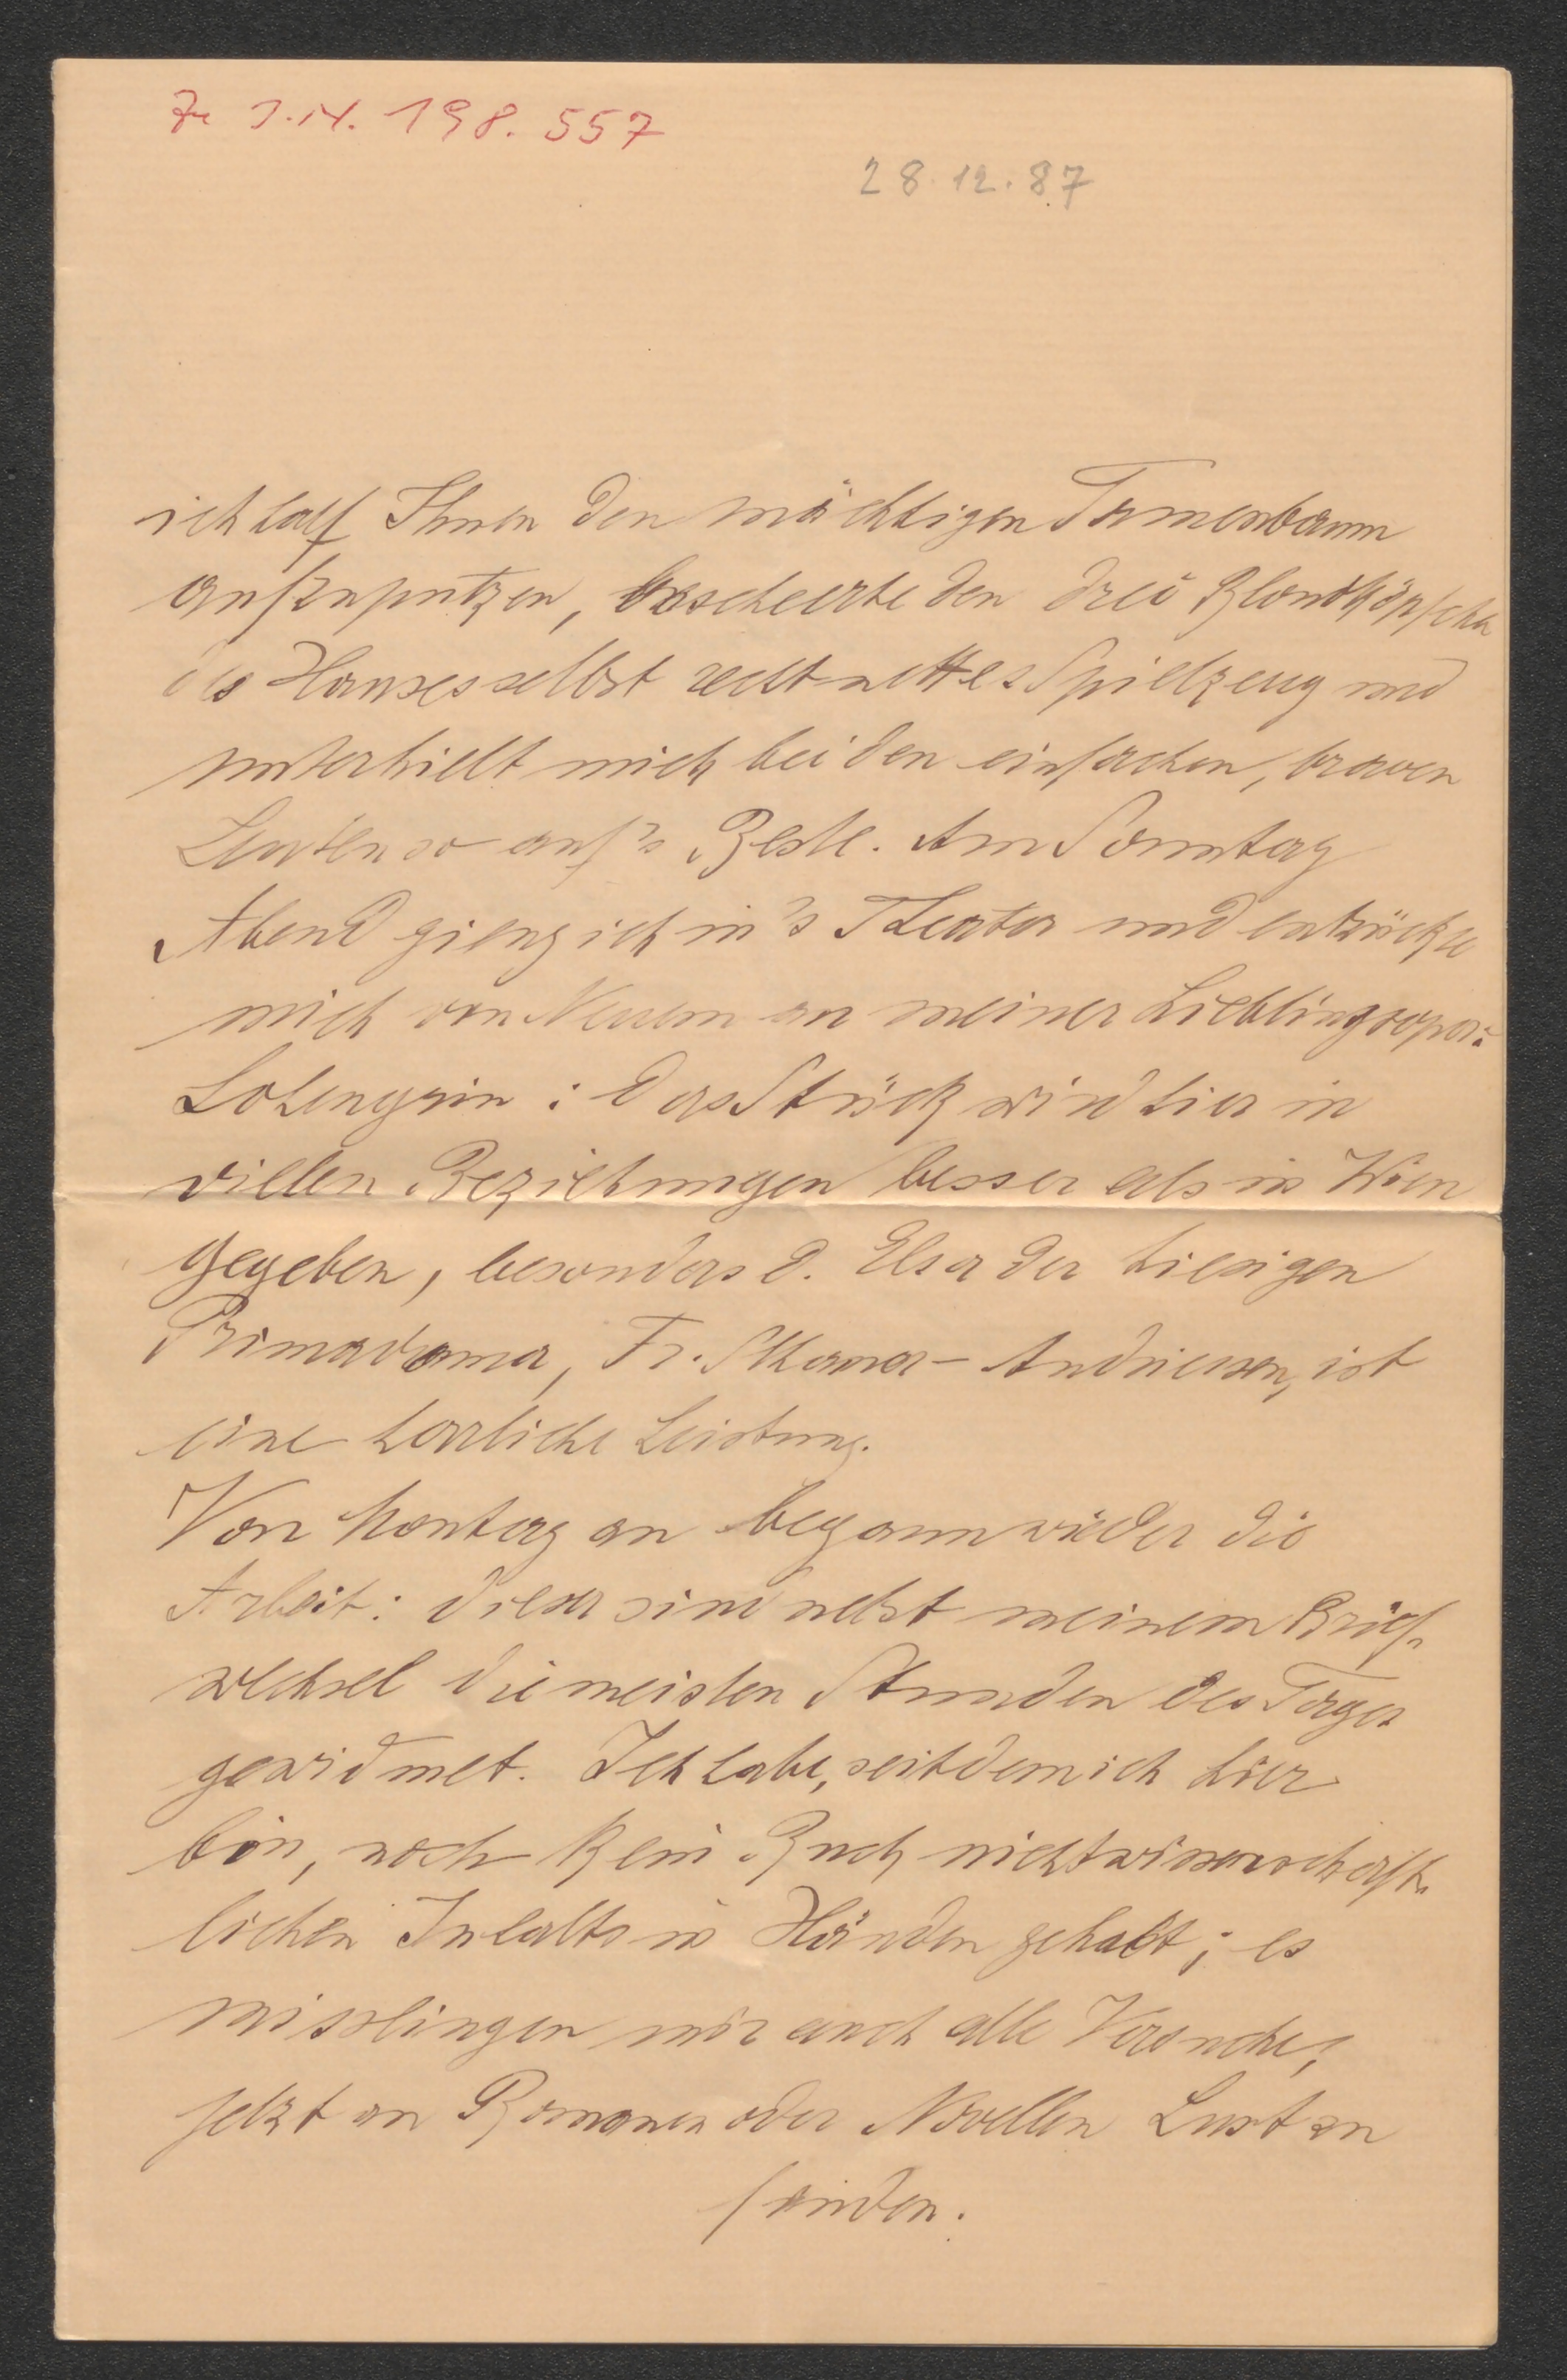 Zu I.N. 198.557
28.12.87
ich half Ihnen den mächtigen Tannenbaum
aufzuputzen, bescheerte den drei Blondköpfchen
des Hauses selbst recht nettes Spielzeug und
unterhielt mich bei den einfachen, braven
Leuten so auf's Beste. Am Sonntag
Abend gieng ich in's Theater und entzückte
mich von Neuem an meiner Lieblingsoper:
Lohengrin: das Stück wird hier in
vielen Beziehungen besser als in Wien
gegeben, besonders d. Elsa der hiesigen
Primadonna, Fr. Sthamer-Andriessen, ist
eine herrliche Leistung.
Von Montag an begann wieder die
Arbeit: dieser sind nebst meinem Brief-
wechsel die meisten Stunden des Tages
gewidmet. Ich habe, seitdem ich hier
bin, noch kein Buch nichtwissenschaft-
lichen Inhalts in Händen gehabt; es
misslingen mir auch alle Versuche,
jetzt an Romanen oder Novellen Lust zu
finden.